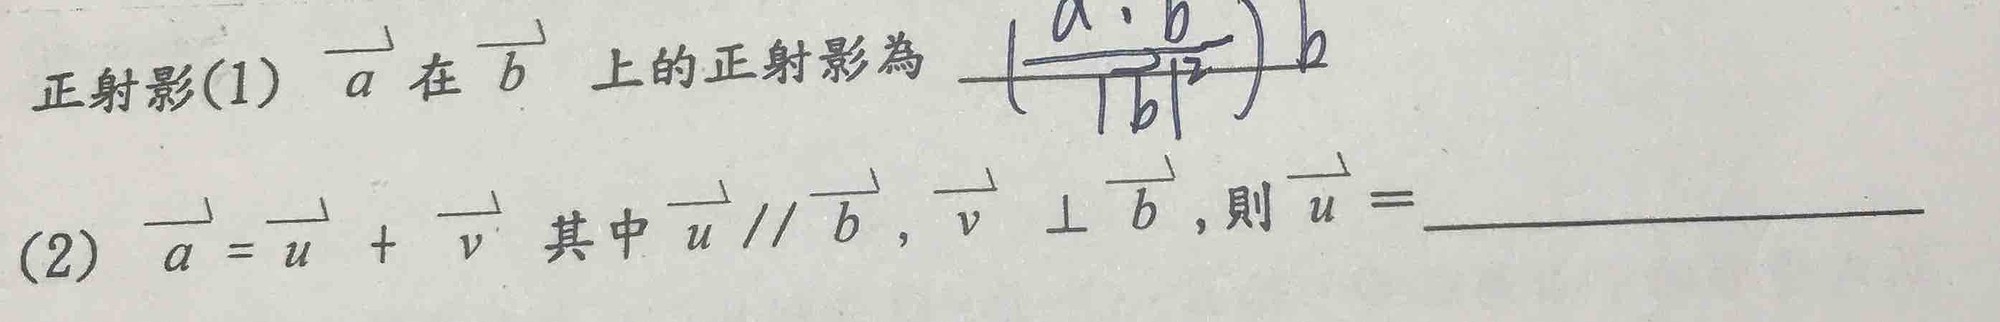 正射影(1) a 在 b 上的正射影為 (a·b/|b|²)b
(2) a = u + v 其中 u // b , v ⊥ b , 則 u =